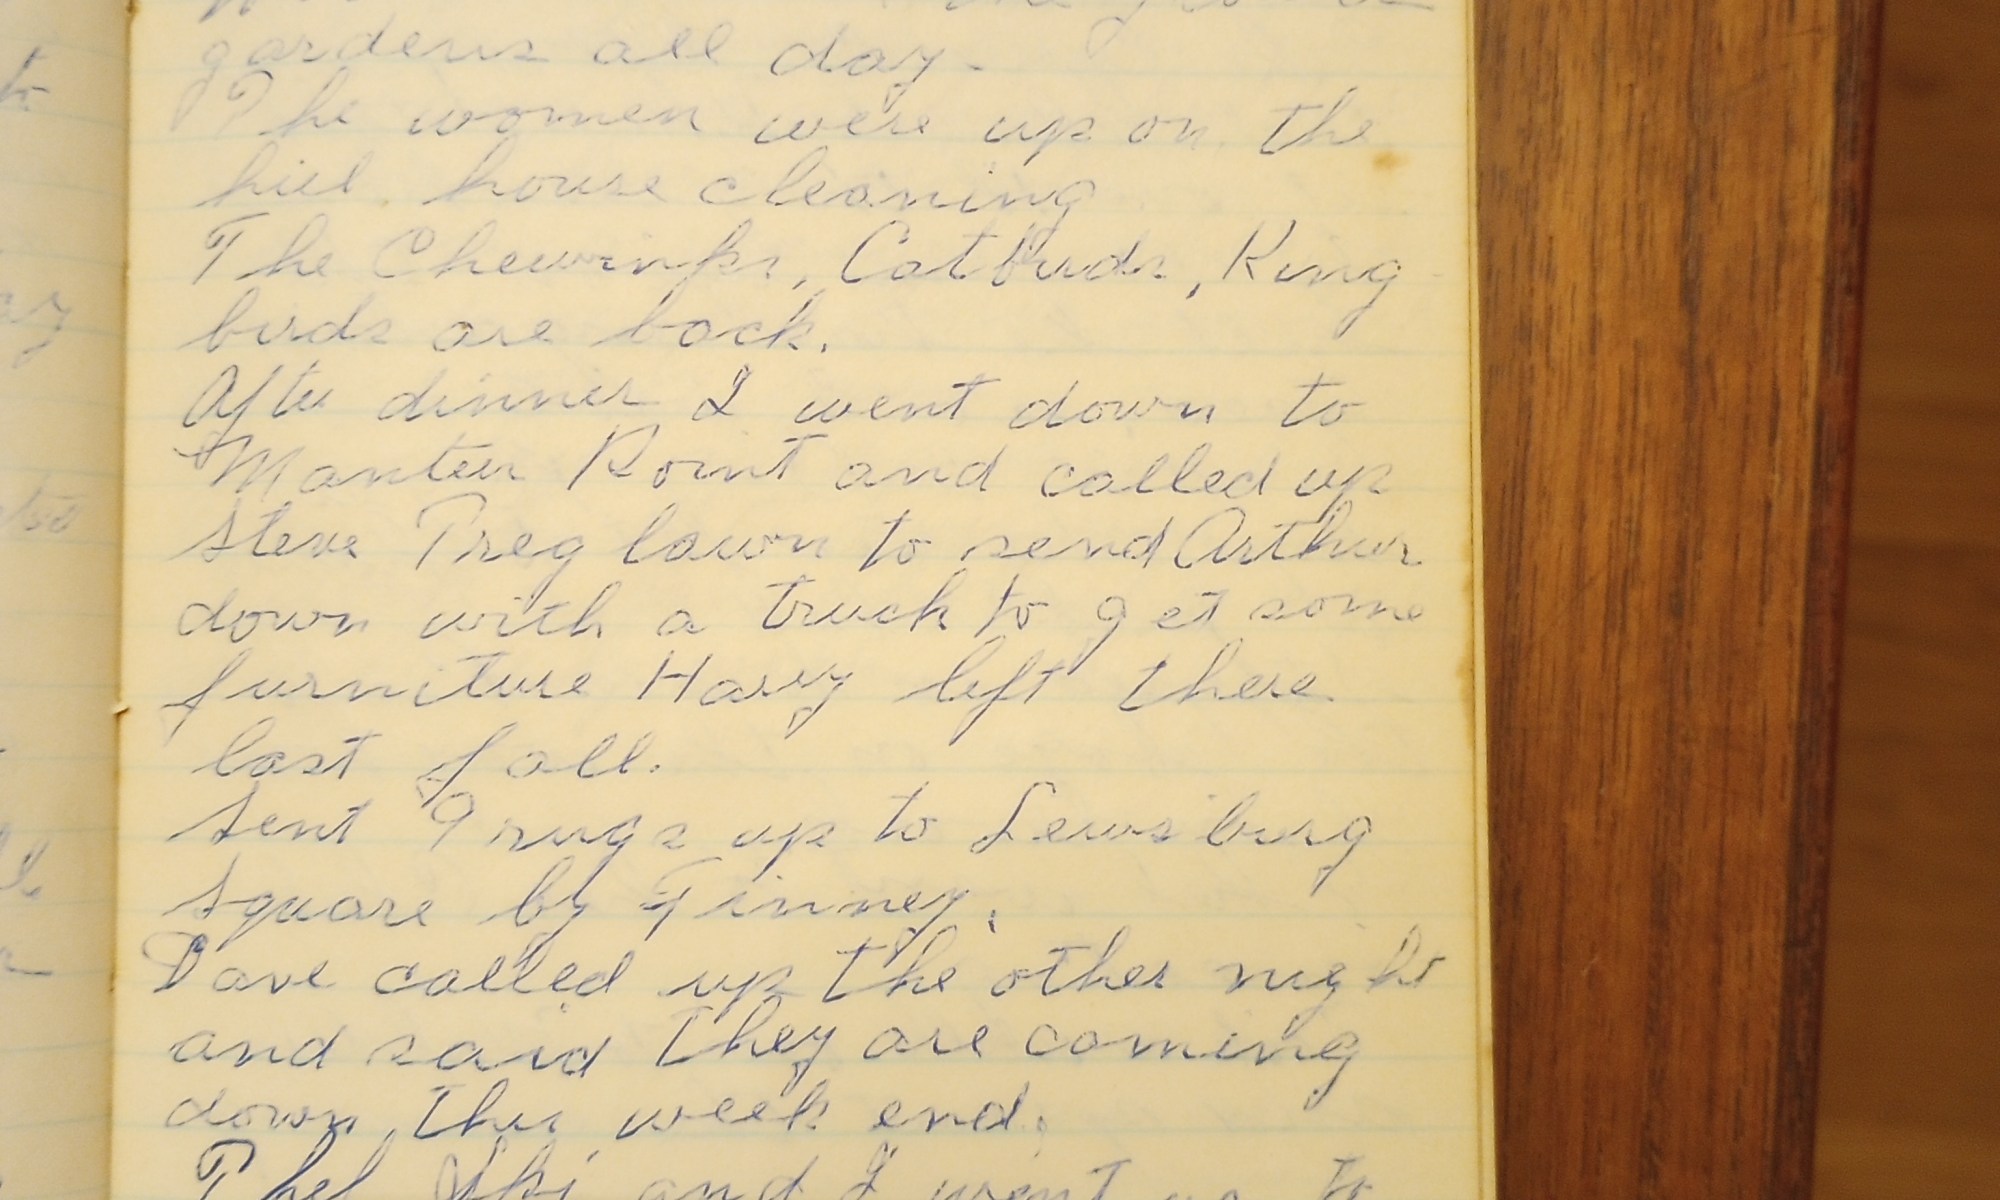 gardens all day.
The women were up on the
hill house cleaning
The Chewinks, Catbirds, King
birds are back.
After dinner I went down to
Manters Point and called up
Steve Treglown to send Arthur
down with a truck to get some
furniture Harry left there
last fall.
Sent 9 rugs up to Lewisburg
Square by Finney.
Dave called up the other night
and said they are coming
down this week end.
and I went up to